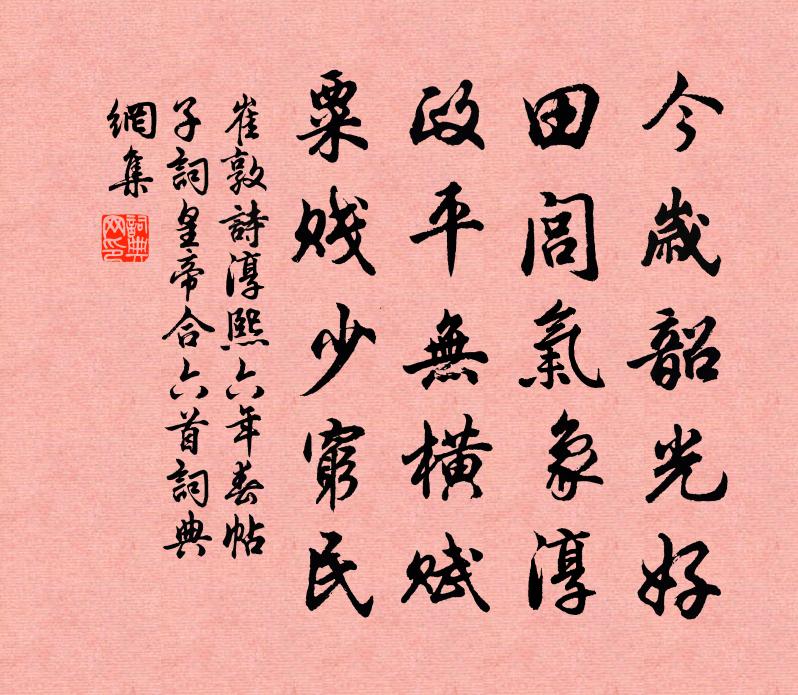 今歲韶光好
田閭氣象淳
政平無橫賦
粟賤少窮民
崔敦詩淳熙六年春帖
子詞皇帝合六首詞典
網集
詞典
网印